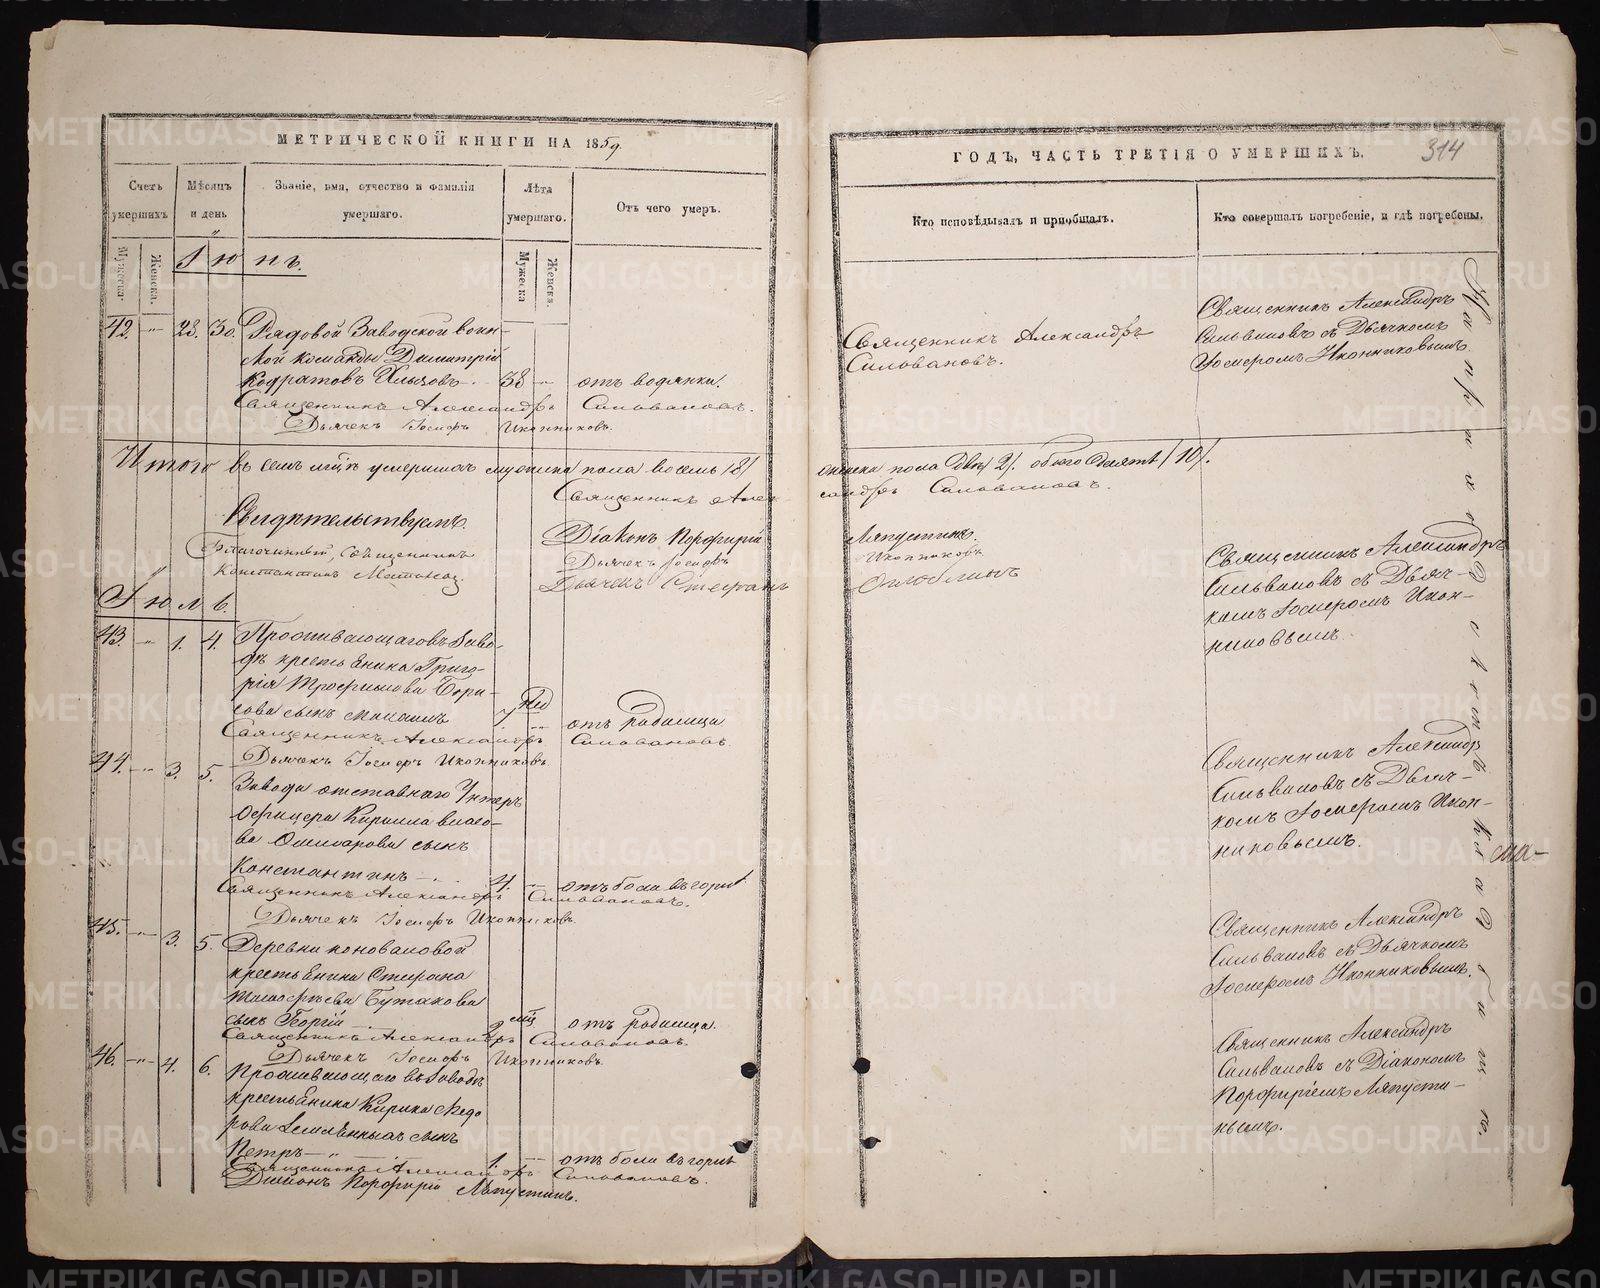 МЕТРИЧЕСКОЙ КНИГИ НА 1859
Счетъ умершихъ
Мѣсяцъ и день
Званіе, имя, отчество и фамилія умершаго.
Лѣта умершаго.
Отъ чего умеръ.
Мужеска.
Женска.
Мужеска
Женска.
Іюнь.
42. -"- 28. 30. Рядовой Заводской воин-
ской команды Димитрій
Кодратовъ 38 -"- отъ водянки.
Священникъ Александръ Сильвановъ.
Дьячекъ Іосифъ Иконниковъ.
Итого въ семъ мцѣ умершихъ мужеска пола восемь /8/
Священникъ Алек-
Свидѣтельствуемъ.
Діаконъ Порфирій
Благочинный, Священникъ
Дьячекъ Іосифъ
Константинъ
Дьячекъ Стефанъ
Іюль.
43. -"- 1. 4. Проживающаго въ Заво-
дѣ крестьянина Григо-
рія Трофимова Бори-
сова сынъ Михаилъ нед отъ родимца
Священникъ Александръ Сильвановъ.
Дьячекъ Іосифъ Иконниковъ.
44. -"- 3. 5. Завода отставнаго Унтеръ
Офицера Кирилла Власо-
ва сынъ
Константинъ 4. отъ боли въ горлѣ
Священникъ Александръ Сильвановъ.
Дьячекъ Іосифъ Иконниковъ.
45. -"- 3. 5. Деревни Коноваловой
крестьянина Стефана
Бутакова
сынъ Георгій 2 мцъ отъ родимца.
Священникъ Александръ Сильвановъ.
Дьячекъ Іосифъ Иконниковъ.
46. -"- 4. 6. Проживающаго въ Заводѣ
крестьянина Кирика Ѳедо
рова сынъ
Петръ 1. отъ боли въ горлѣ
Священникъ Александръ Сильвановъ.
Діаконъ Порфирій Ляпустинъ.
ГОДЪ, ЧАСТЬ ТРЕТІЯ О УМЕРШИХЪ.
314
Кто исповѣдывалъ и пріобщалъ.
Кто совершалъ погребеніе, и гдѣ погребены.
Священникъ Александръ
Сильвановъ.
Священникъ Александръ
Сильвановъ съ Дьячкомъ
Іосифомъ Иконниковымъ
женска пола двѣ /2/. обоего десять /10/.
сандръ Сильвановъ.
Ляпустинъ.
Иконниковъ
Священникъ Александръ
Сильвановъ съ Дьяч-
комъ Іосифомъ Икон-
никовымъ.
Священникъ Александръ
Сильвановъ съ Дьяч-
комъ Іосифомъ Икон-
никовымъ.
Священникъ Александръ
Сильвановъ съ Дьячкомъ
Іосифомъ Иконниковымъ.
Священникъ Александръ
Сильвановъ съ Діакономъ
Порфиріемъ Ляпусти-
нымъ.
На приходскомъ кладбищѣ.
METRIKI.GASO-URAL.RU